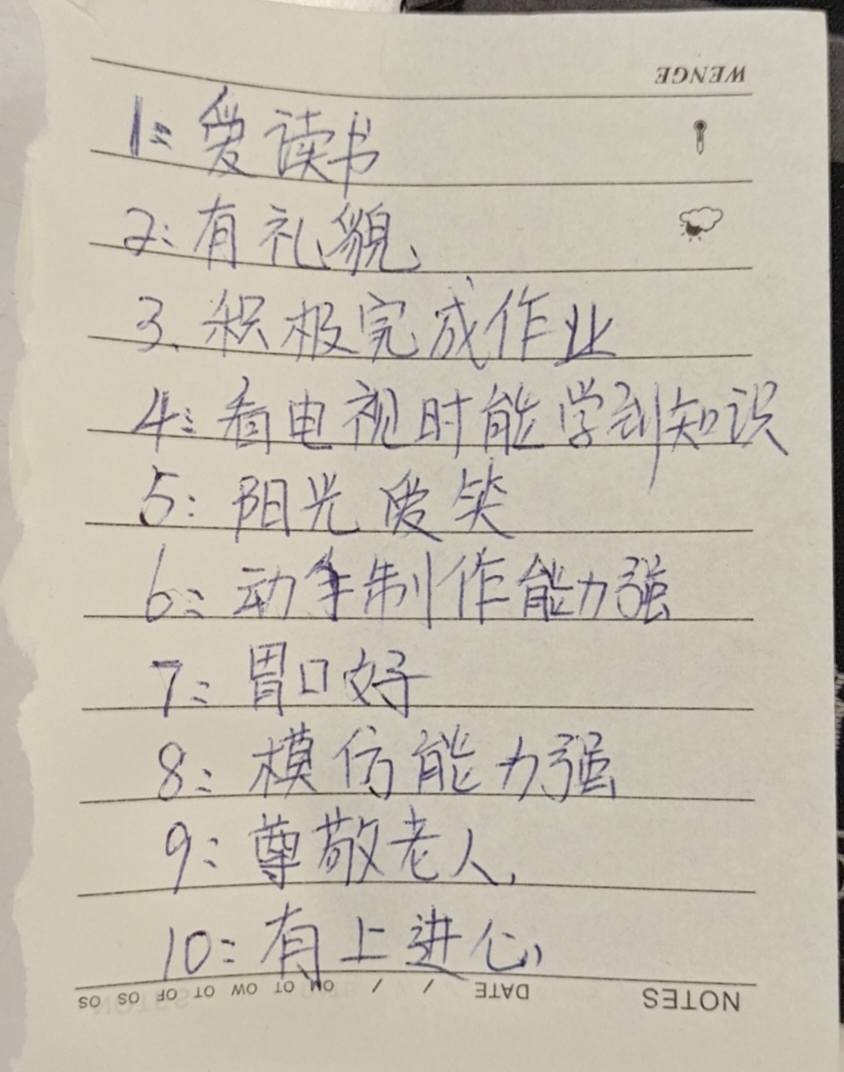 WENGE
1: 爱读书
2: 有礼貌
3. 积极完成作业
4: 看电视时能学到知识
5: 阳光爱笑
6: 动手制作能力强
7: 胃口好
8: 模仿能力强
9: 尊敬老人.
10: 有上进心
NOTES DATE / / OM OT OW OT OF OS OS